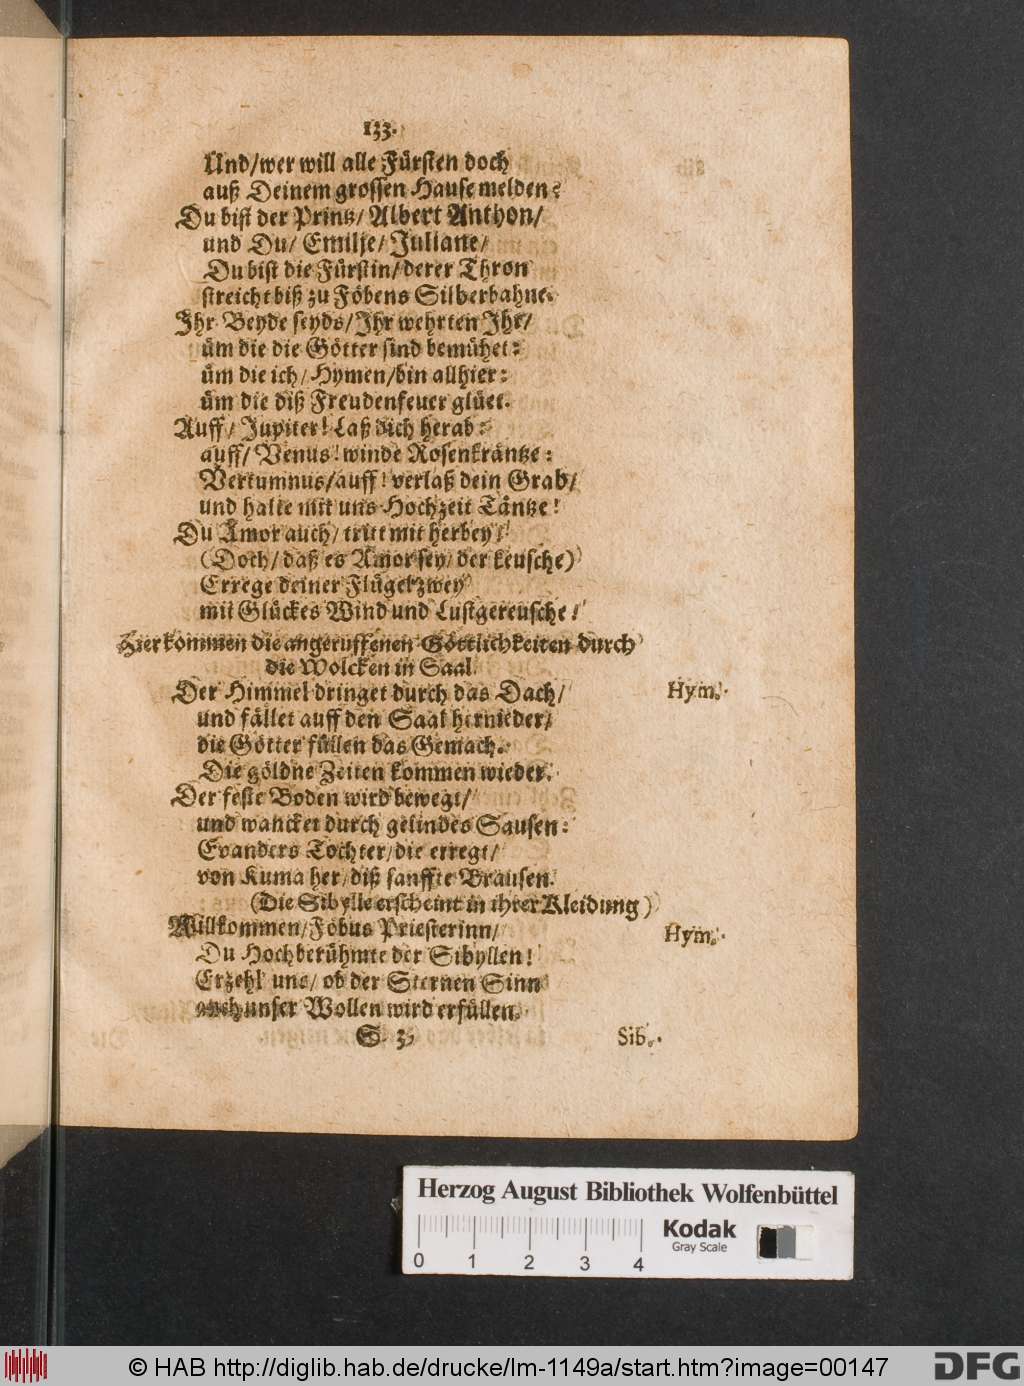 133.
Und/wer will alle Fürsten doch
auß Deinem grossen Hause melden?
Du bist der Printz/ Albert Anthon/
und Du/ Emilje/ Juliane/
Du bist die Fürstin/derer Thron
streicht biß zu Föbens Silberbahne.
Ihr Beyde seyds/Ihr wehrten Ihr/
üm die die Götter sind bemühet:
üm die ich/ Hymen/bin allhier:
üm die diß Freudenfeuer glüet.
Auff/ Jupiter! Laß dich herab:
auff/ Venus! winde Rosenkräntze:
Vertumnus/auff! verlaß dein Grab/
und halte mit uns Hochzeit Täntze!
Du Amor auch/ tritt mit herbey/
(Doch/ daß es Amor sey/ der keusche)
Errege deiner Flügel zwey
mit Glückes Wind und Lustgereusche!
Hier kommen die angeruffenen Göttlichkeiten durch
die Wolcken in Saal.
Der Himmel dringet durch das Dach/ Hym.
und fället auff den Saal hernieder/
die Götter füllen das Gemach.
Die göldne Zeiten kommen wieder.
Der feste Boden wird bewegt/
und wancket durch gelindes Sausen:
Evanders Tochter/die erregt/
von Kuma her/diß sanffte Brausen.
(Die Sibylle erscheint in ihrer Kleidung)
Willkommen/Föbus Priesterinn/ Hym.
Du Hochberühmte der Sibyllen!
Erzehl uns/ ob der Sternen Sinn
auch unser Wollen wird erfüllen.
S. 3. Sib.
Herzog August Bibliothek Wolfenbüttel
Kodak
Gray Scale
0 1 2 3 4
© HAB http://diglib.hab.de/drucke/lm-1149a/start.htm?image=00147
DFG